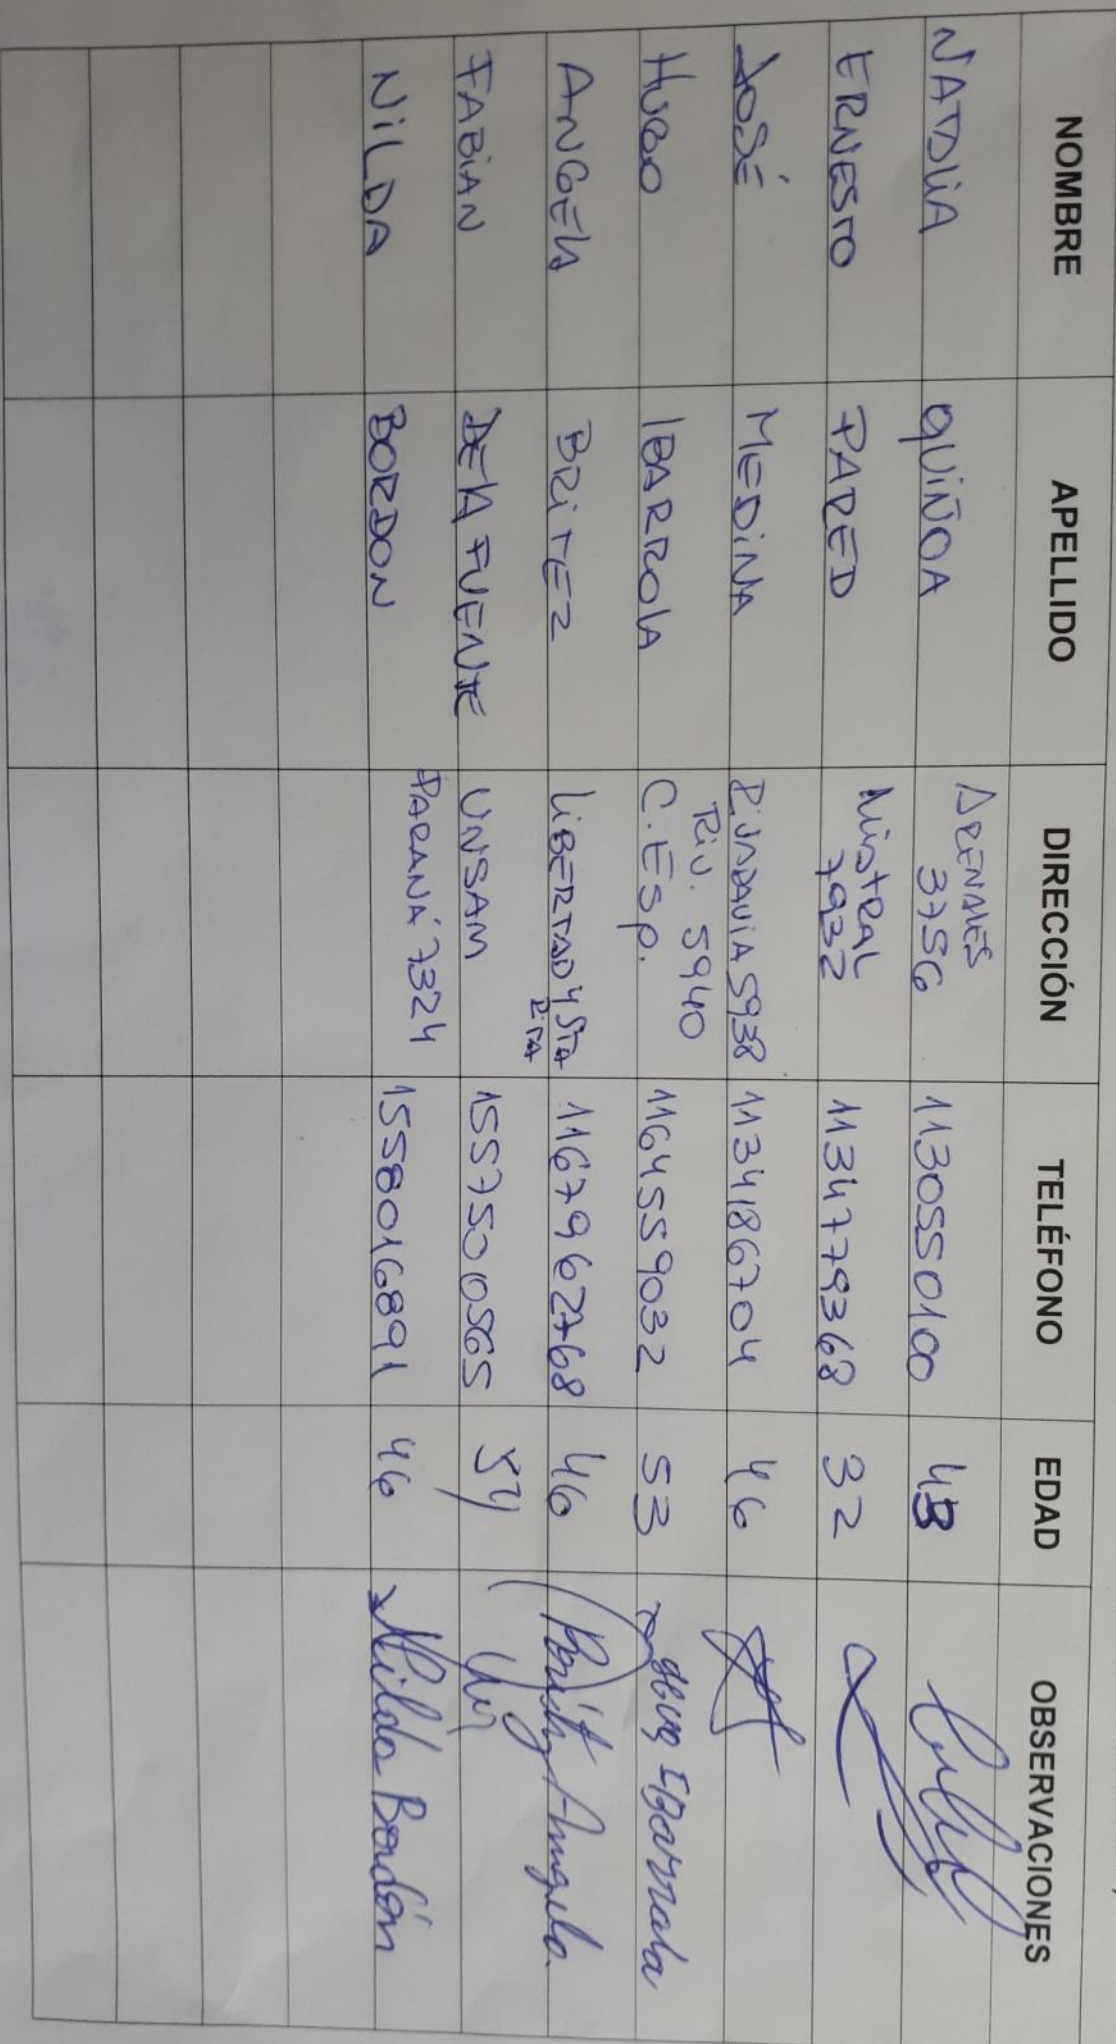 NOMBRE APELLIDO DIRECCIÓN TELÉFONO EDAD OBSERVACIONES
NATALIA QUIÑOA ARENALES 3756 1130550100 43
ERNESTO PARED MISTRAL 7932 1134779368 32
JOSÉ MEDINA RIVADAVIA 5938 1134186704 46
HUGO IBARROLA RIV. 5940 C. ESP. 1164559032 53 Hugo Ibarrola
ANGELA BRITEZ LIBERTAD Y STA RITA 1167962768 46 Britez Angela
FABIAN DE LA FUENTE UNSAM 1557500565 54
NILDA BORDON PARANÁ 7324 1558016891 46 Nilda Bordón